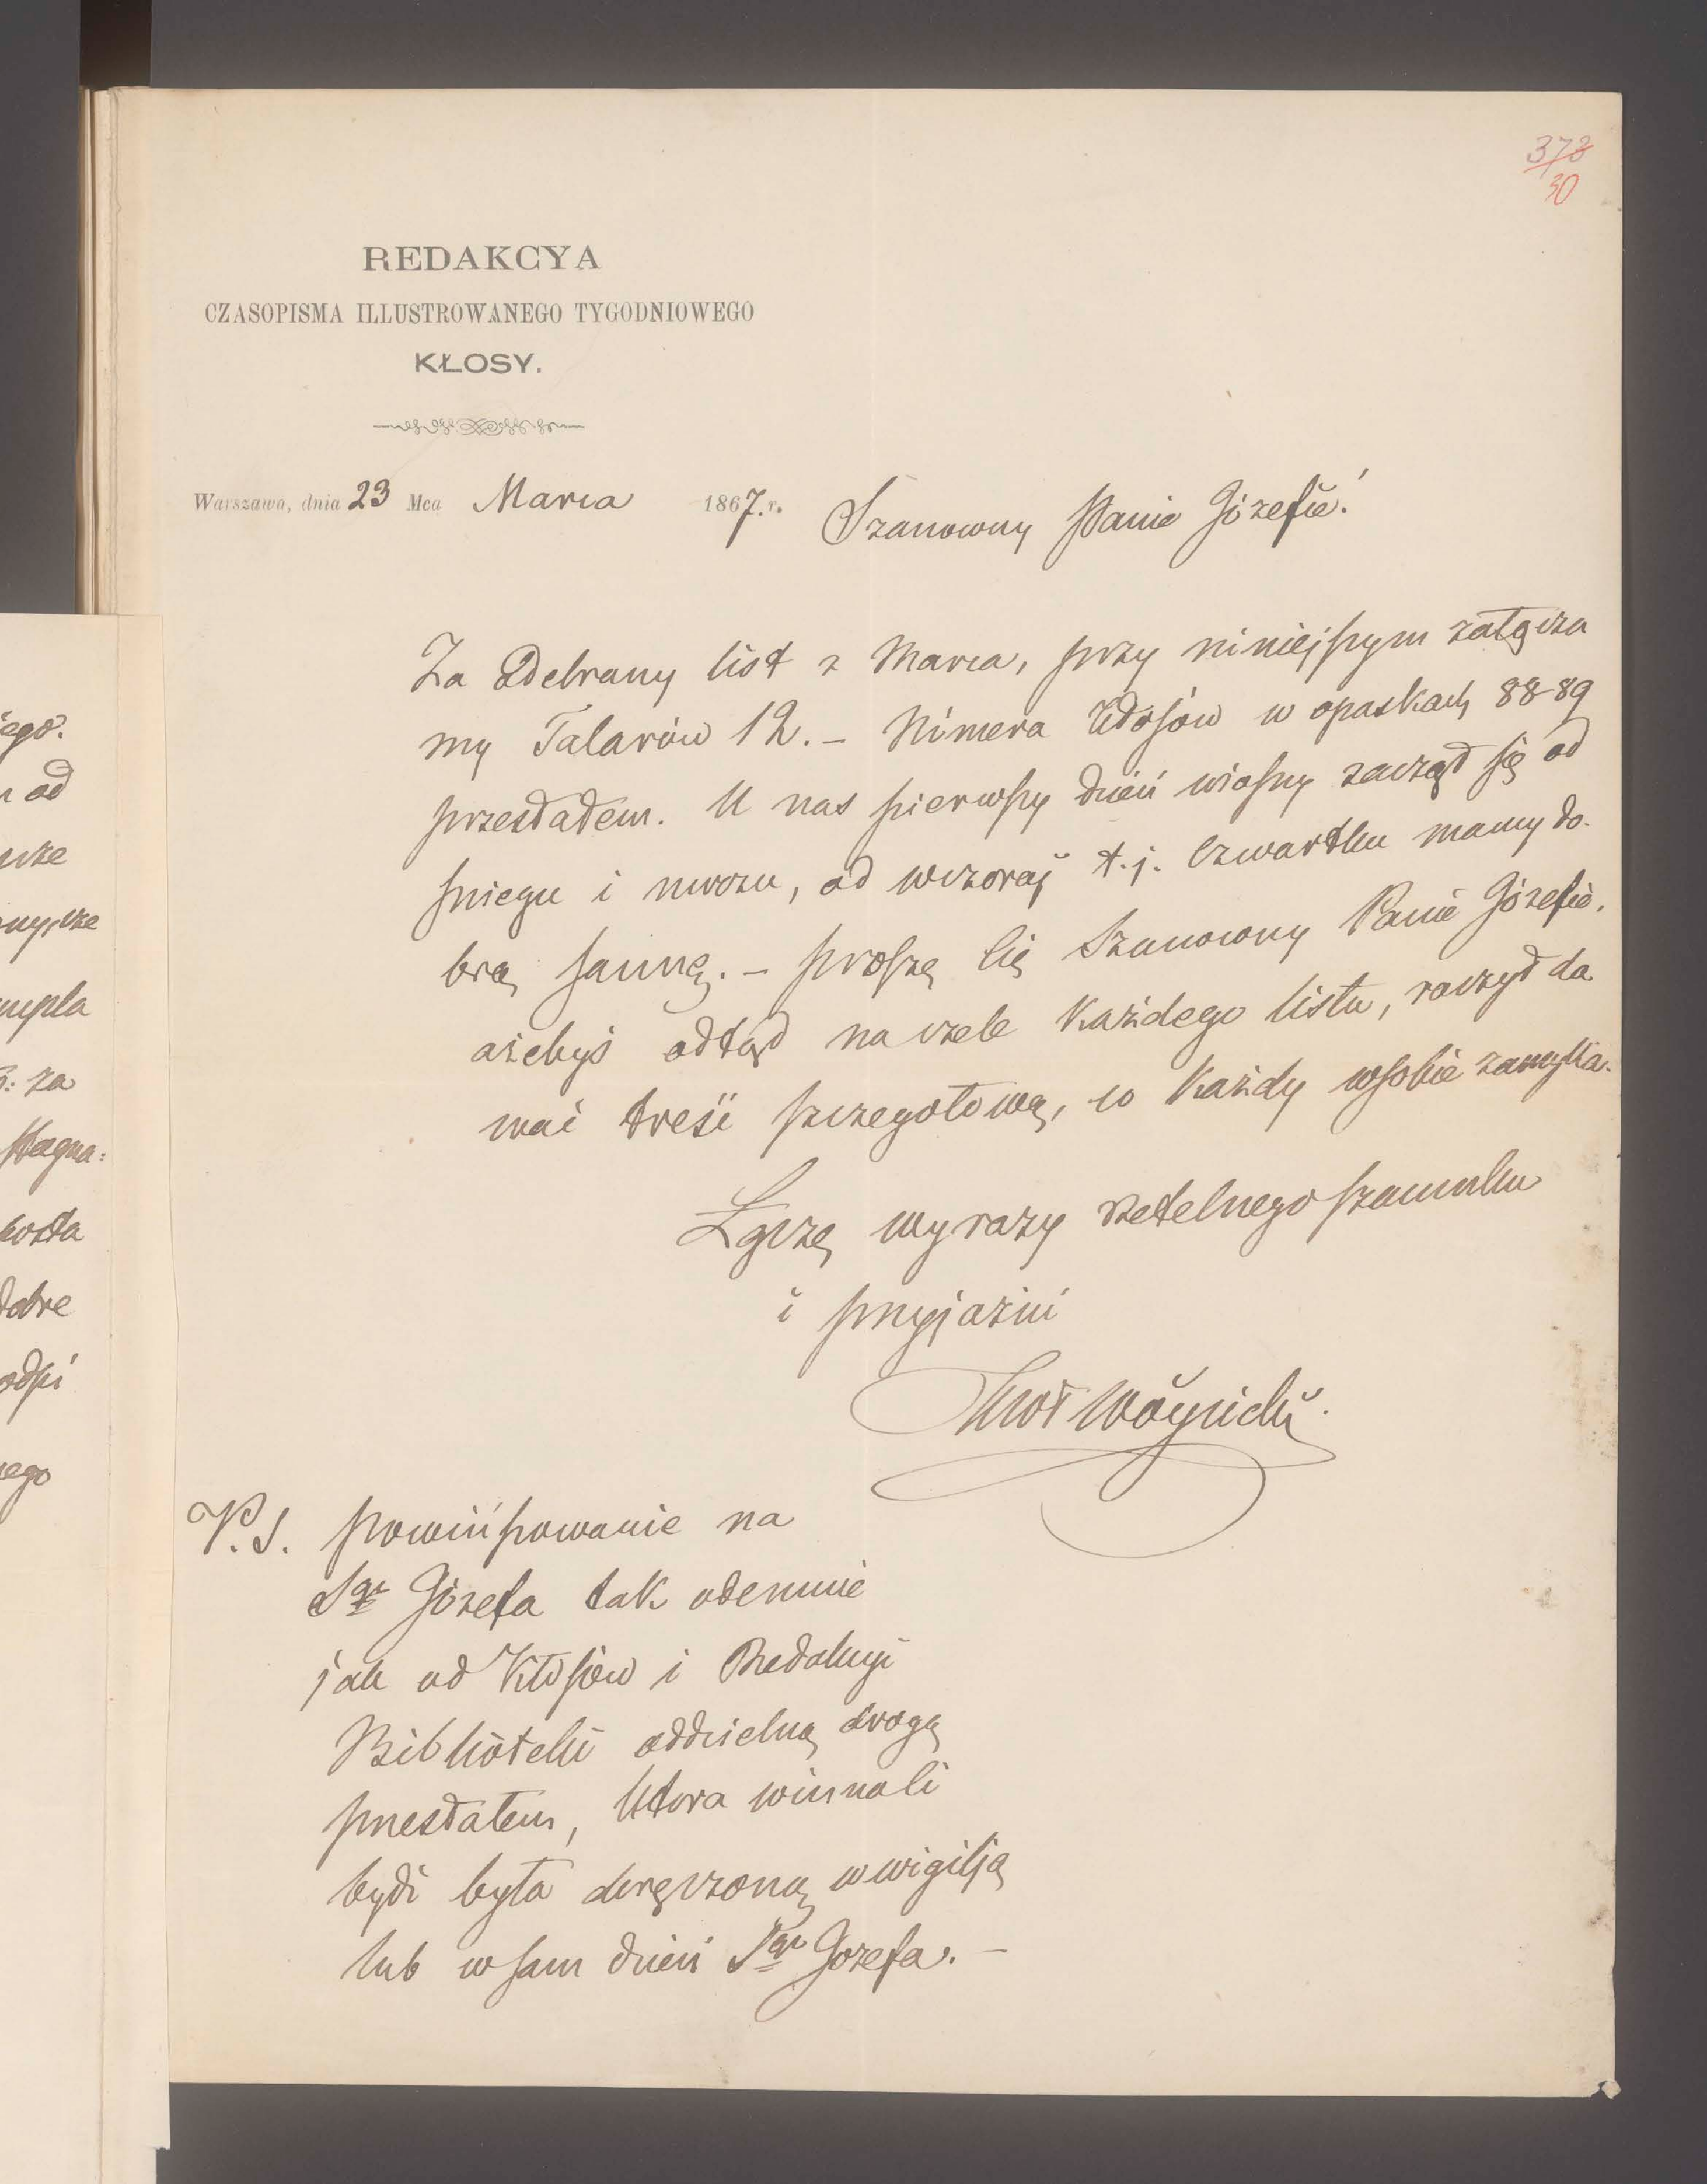 378
30
REDAKCYA
CZASOPISMA ILLUSTROWANEGO TYGODNIOWEGO
KŁOSY.
Warszawa, dnia 23 Mca Marca 1867. r.
Szanowny Panie Józefie!
Za Odebrany list z Marca, przy niniejszym załącza
my Talarów 12. – Numera Kłosów w opaskach 88-89
przesłałem. U nas pierwszy dzień wiosny zaczął się od
śniegu i mrozu, od wczoraj t. j. Czwartku mamy do-
brą sannę. – proszę Cię Szanowny Panie Józefie,
ażebyś odtąd na czele każdego listu, raczył da
wać treść szczegołową, co każdy w sobie zamyka.
Łączę wyrazy rzetelnego szacunku
i przyjaźni
Twoł Wóycicki.
P. S. powinszowanie na
Sgo Józefa tak odemnie
jak od Kłosów i Redakcyi
Biblioteki oddzielną drogą
przesłałem, która winna li
bydź była doręczoną w wigilją
lub w sam dzień Sgo Jozefa. –
iego.
n od
cze
nycze
mpla
3: za
Magna:
oszta
dobre
odpi
ego